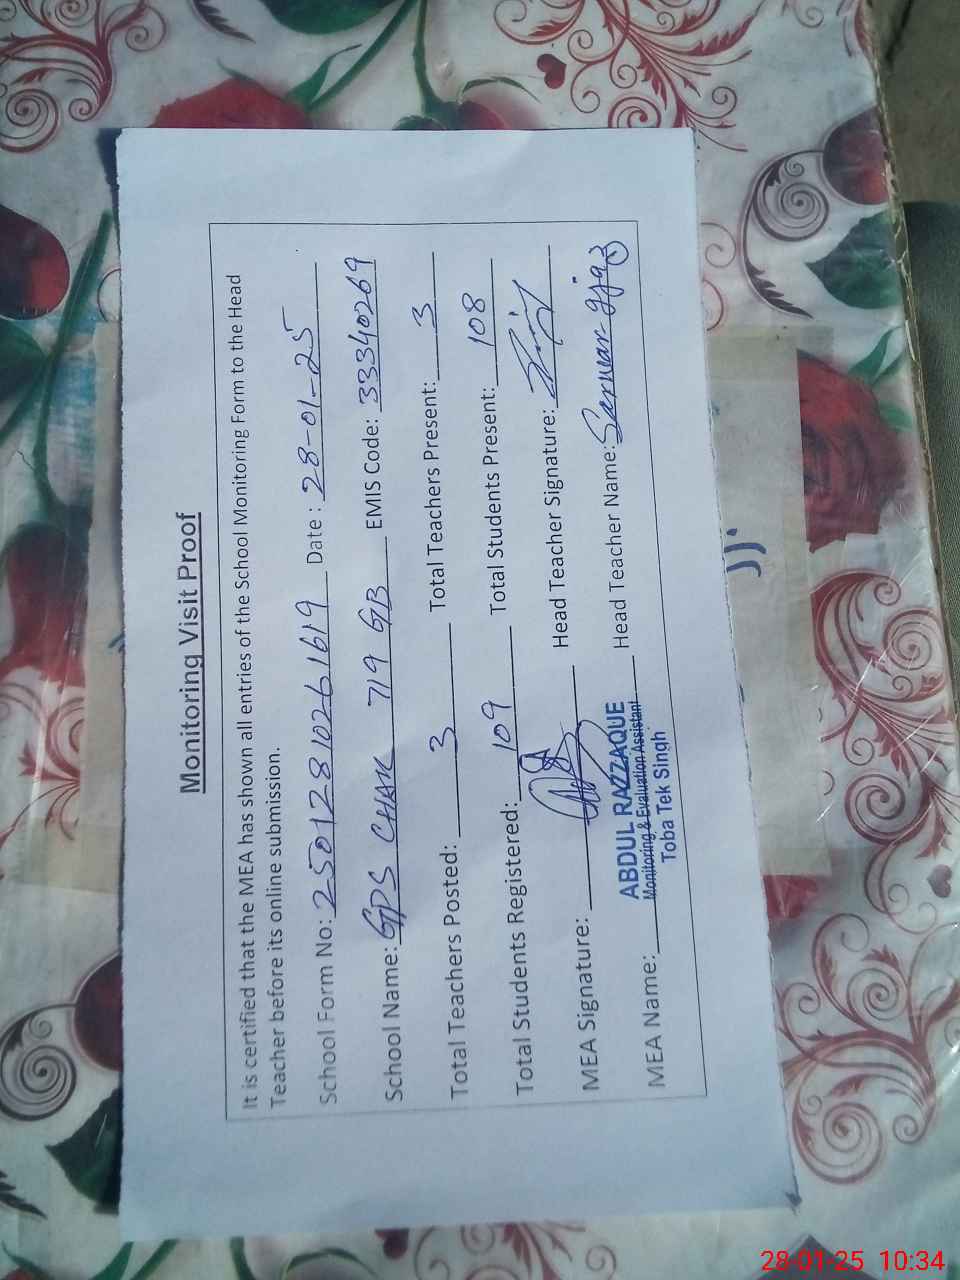 Monitoring Visit Proof
It is certified that the MEA has shown all entries of the School Monitoring Form to the Head
Teacher before its online submission.
School Form No: 25012810261619 Date : 28-01-25
School Name: GPS CHAK 719 GB EMIS Code: 33340269
Total Teachers Posted: 3 Total Teachers Present: 3
Total Students Registered: 109 Total Students Present: 108
MEA Signature: Head Teacher Signature:
MEA Name: ABDUL RAZZAQUE Head Teacher Name: Sarwar
Monitoring & Evaluation Assistant
Toba Tek Singh
28-01-25 10:34